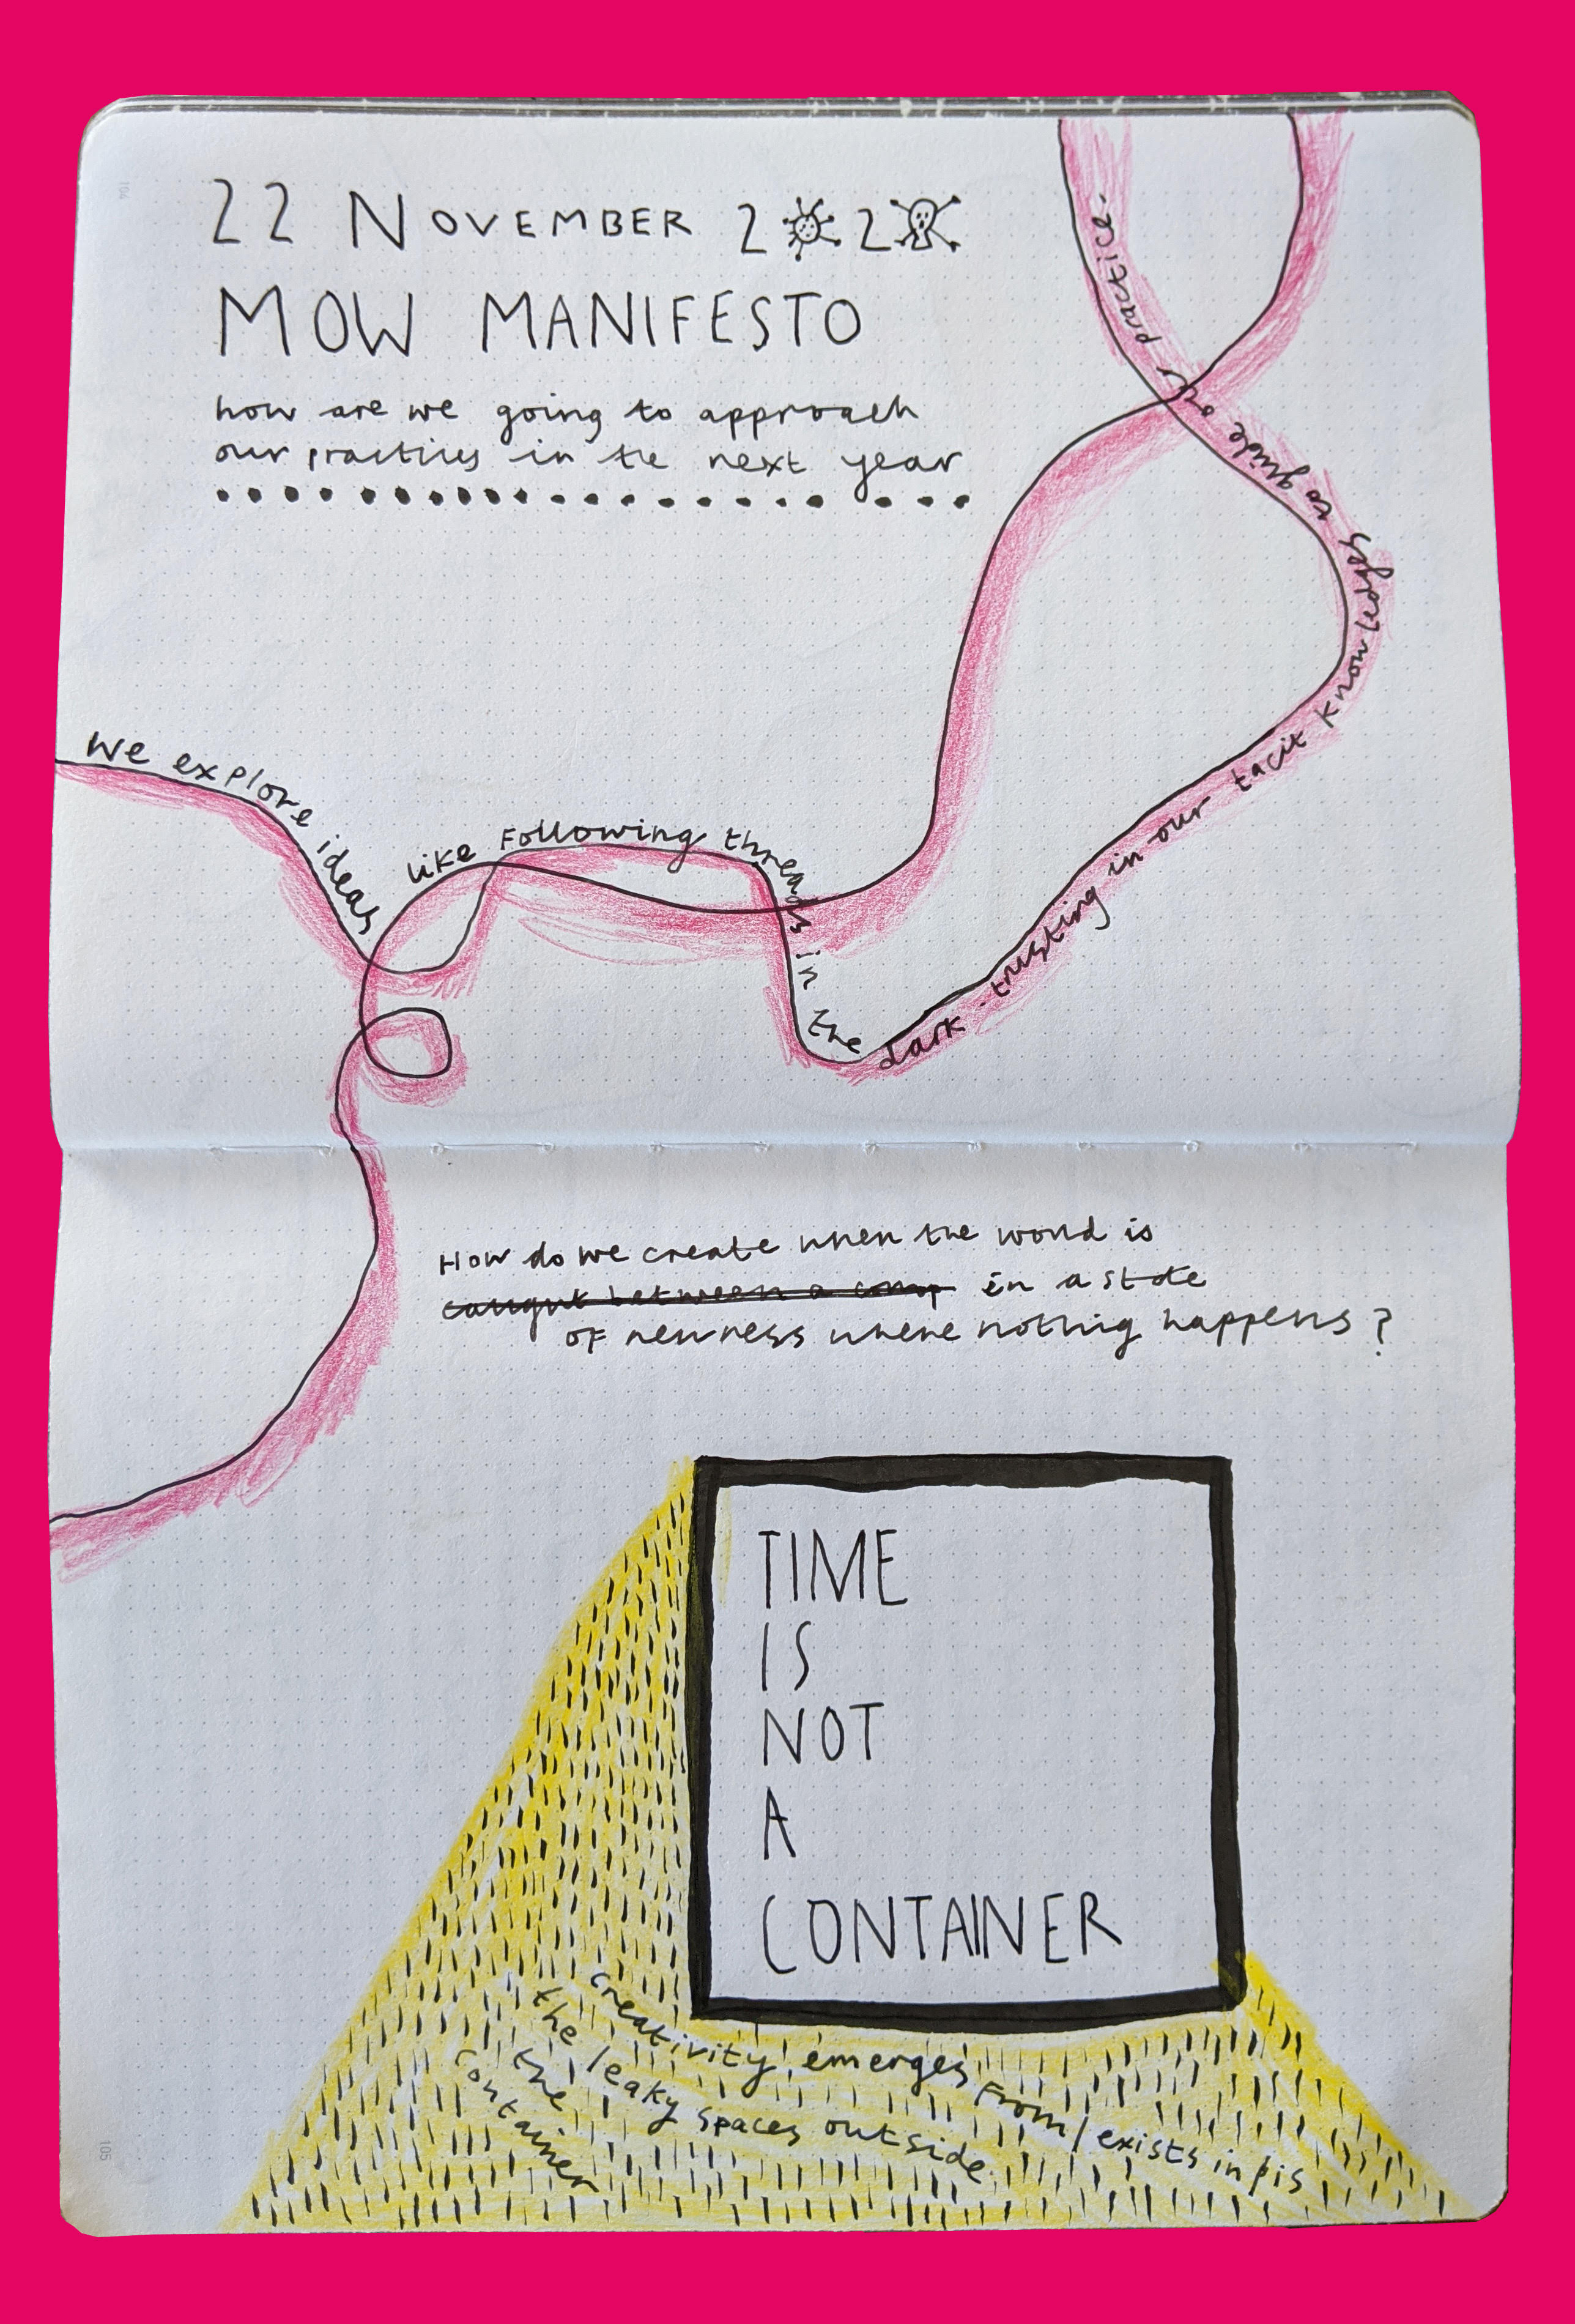 22 NOVEMBER 2020
MOW MANIFESTO
how are we going to approach
our practices in the next year
we explore ideas like following threads in the dark - trusting in our tacit knowledges to guide our practice.
How do we create when the world is
caught between a comp in a state
of newness where nothing happens?
TIME
IS
NOT
A
CONTAINER
creativity emerges from/exists in/is
the leaky spaces outside
the
container
104
105